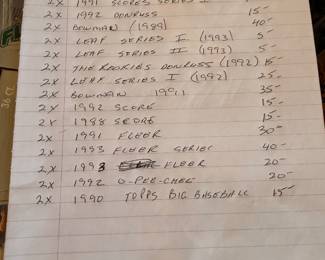 2x 1991 SCORES SERIES I
2x 1992 DONRUSS 15-
2x BOWMAN (1989) 40-
2x LEAF SERIES I (1993) 5-
2x LEAF SERIES II (1993) 5-
2x THE ROOKIES DONRUSS (1992) 15-
2x LEAF SERIES I (1992) 25-
2x BOWMAN 1991 35-
2x 1992 SCORE 15-
2x 1988 SCORE 15-
2x 1991 FLEER 30-
2x 1993 FLEER SERIES 40-
2x 1993 FLEER 20-
2x 1992 O-PEE-CHEE 20-
2x 1990 TOPPS BIG BASEBALL 15-